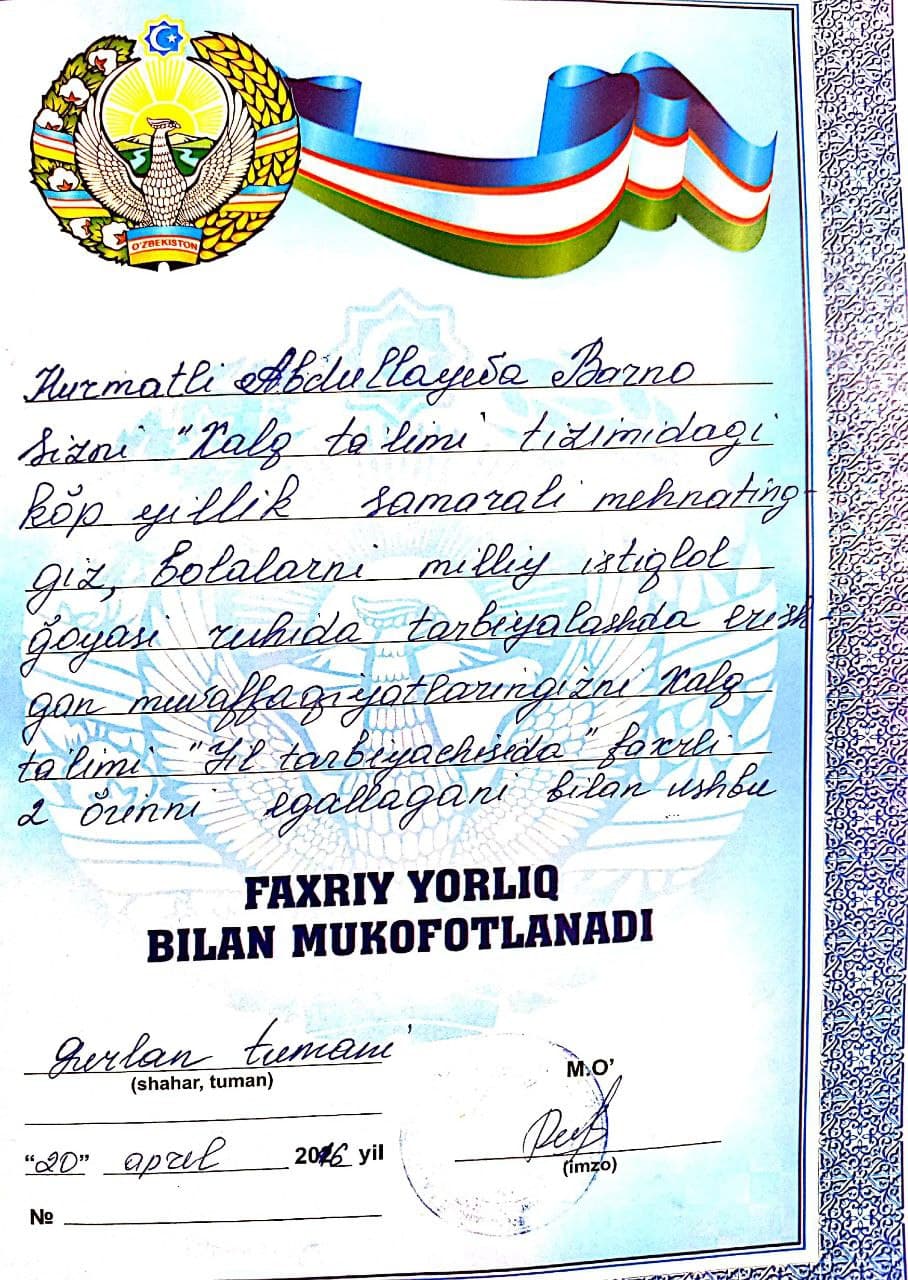 O'ZBEKISTON
Hurmatli Abdullayeva Barno
Sizni "Xalq ta'limi" tizimidagi
kŏp yillik samarali mehnating-
giz, bolalarni milliy istiqlol
ğoyasi ruhida tarbiyalashda erish-
gan muvaffaqiyatlaringizni Xalq
ta'limi "Yil tarbiyachisida" faxrli
2 ŏrinni egallagani bilan ushbu
FAXRIY YORLIQ
BILAN MUKOFOTLANADI
Gurlan tumani
(shahar, tuman)
M.O'
"20" aprel 2016 yil
(imzo)
№